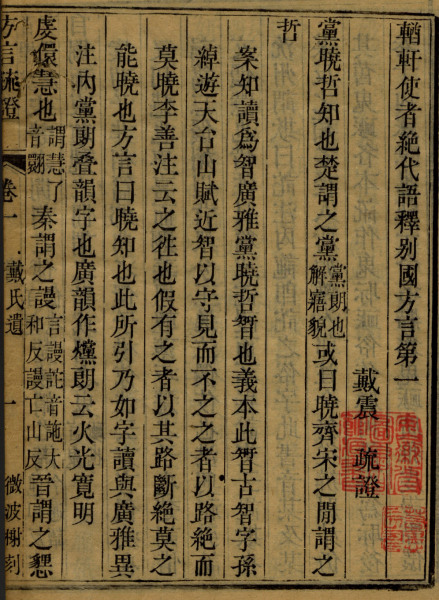 輶軒使者絕代語釋别國方言第一
戴震 疏證
黨曉哲知也楚謂之黨黨朗也解寤貌或曰曉齊宋之閒謂之
哲
案知讀爲智廣雅黨曉哲智也義本此智古智字孫
綽遊天台山賦近智以守見而不之之者以路絕而
莫曉李善注云之徃也假有之者以其路斷絕莫之
能曉也方言曰曉知也此所引乃如字讀與廣雅異
注内黨朗叠韻字也廣韻作爣朗云火光寬明
虔儇慧也謂慧了音翾秦謂之謾言謾詑音詑大和反謾亡山反晉謂之懇
方言疏證 卷一 戴氏遺 一 微波榭刻